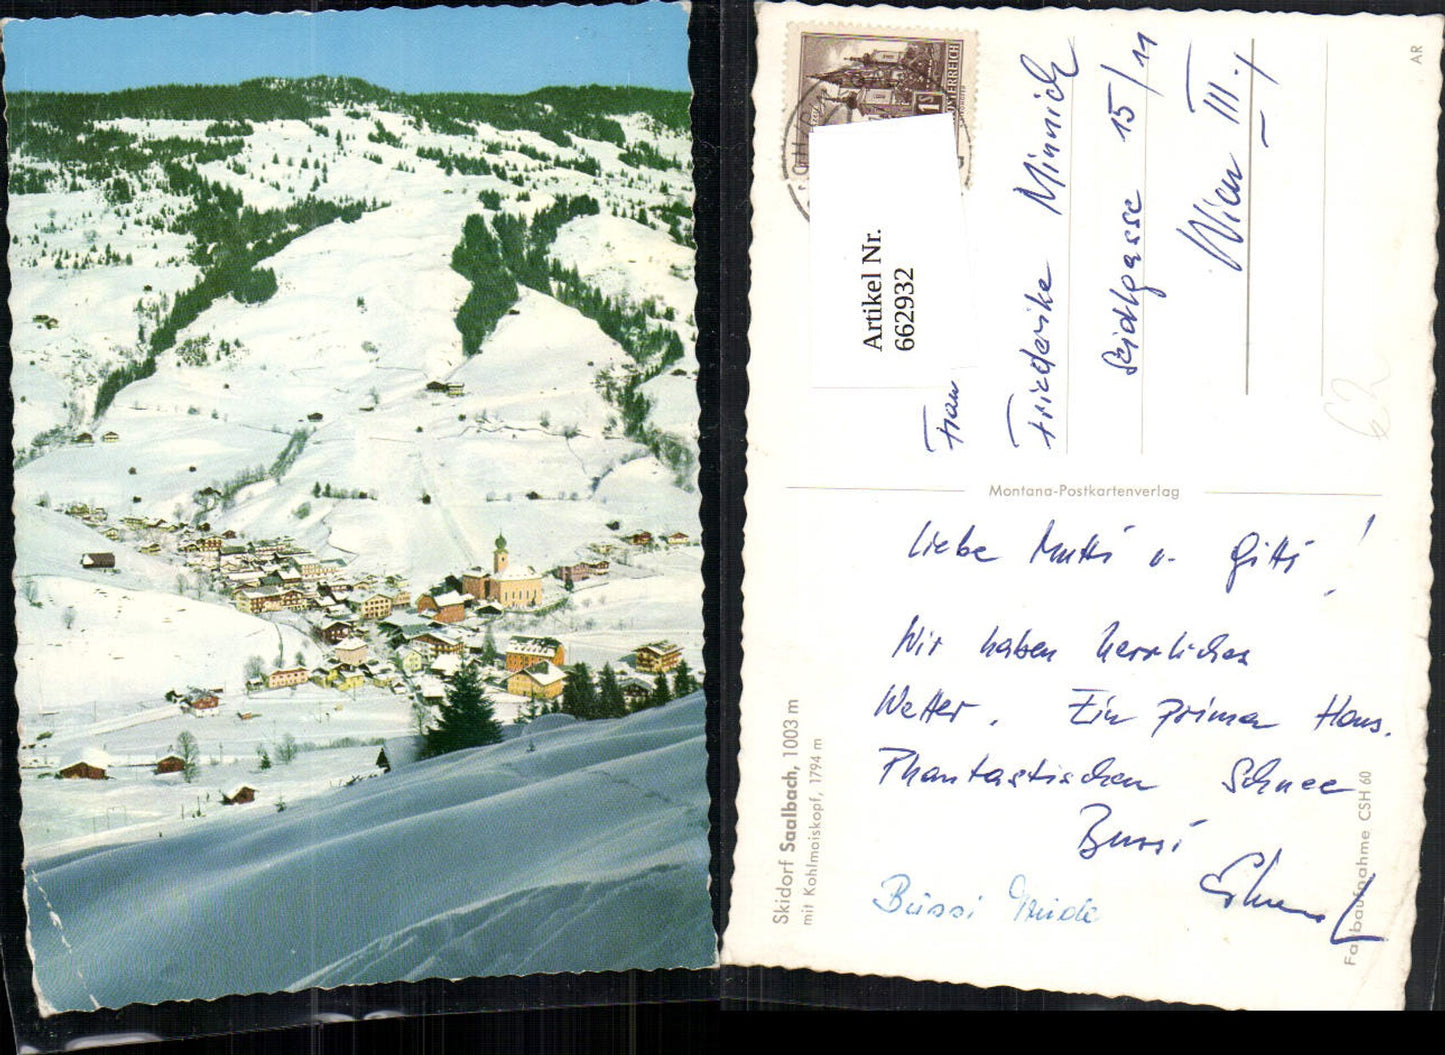 1S
ÖSTERREICH
Artikel Nr.
662932
Frau
Friederike Minnich
Seidlgasse 15/11
Wien III.
AR
Montana-Postkartenverlag
Liebe Mutti u. Gitti!
Wir haben herrliches
Wetter. Ein prima Haus.
Phantastischen Schnee
Bussi
Bussi
Skidorf Saalbach, 1003 m
mit Kohlmaiskopf, 1794 m
Farbaufnahme CSH 60